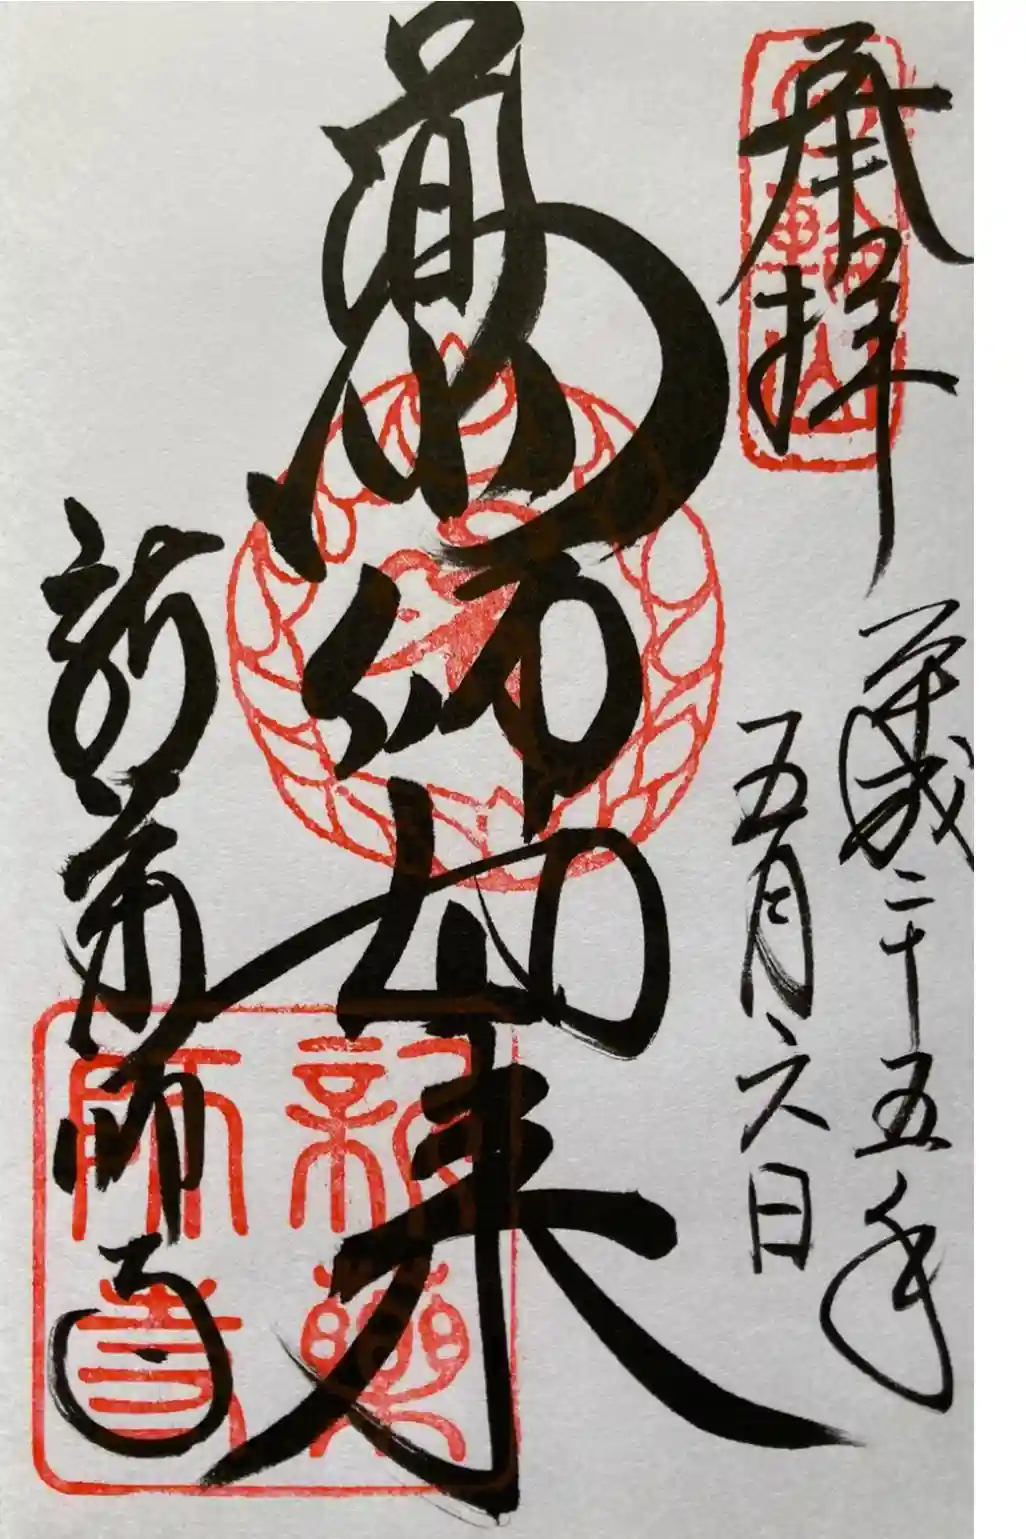 奉拝
日輪山
平成二十五年
五月六日
薬師如来
新薬師寺
新藥師寺